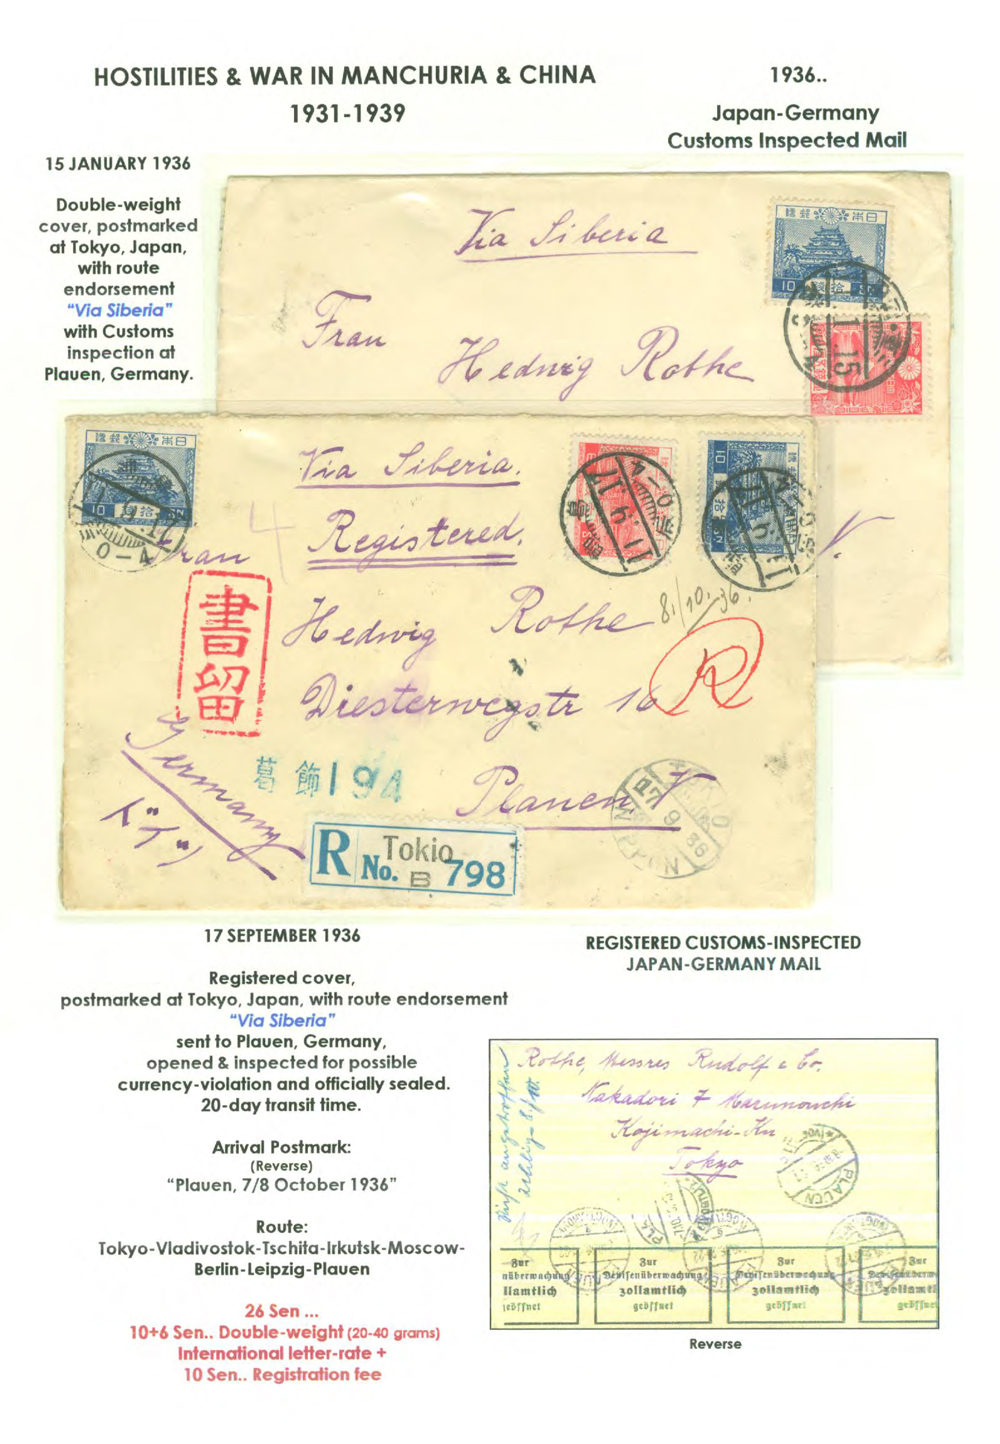 HOSTILITIES & WAR IN MANCHURIA & CHINA
1931-1939
1936..
Japan-Germany
Customs Inspected Mail
15 JANUARY 1936
Double-weight
cover, postmarked
at Tokyo, Japan,
with route
endorsement
"Via Siberia"
with Customs
inspection at
Plauen, Germany.
Via Siberia
Frau
Hedwig Rothe
V.
Via Siberia.
Registered.
Frau
4
Hedwig Rothe
8./10. 36.
Diesterwegstr 16
R
Plauen V
Germany
ドイツ
書留
葛飾194
R No. Tokio B 798
17 SEPTEMBER 1936
Registered cover,
postmarked at Tokyo, Japan, with route endorsement
"Via Siberia"
sent to Plauen, Germany,
opened & inspected for possible
currency-violation and officially sealed.
20-day transit time.
Arrival Postmark:
(Reverse)
"Plauen, 7/8 October 1936"
Route:
Tokyo-Vladivostok-Tschita-Irkutsk-Moscow-
Berlin-Leipzig-Plauen
26 Sen ...
10+6 Sen.. Double-weight (20-40 grams)
International letter-rate +
10 Sen.. Registration fee
REGISTERED CUSTOMS-INSPECTED
JAPAN-GERMANY MAIL
Rothe, Messres Rudolf & Co.
Nakadori 7 Marunouchi
Kojimachi-Ku
Tokyo
Nicht angetroffen
PLAUEN
Zur Zur Zur Zur
nüberwachung Devisenüberwachung Devisenüberwachung Devisenüberw
llamtlich zollamtlich zollamtlich zollamtli
geöffnet geöffnet geöffnet geöffnet
Reverse